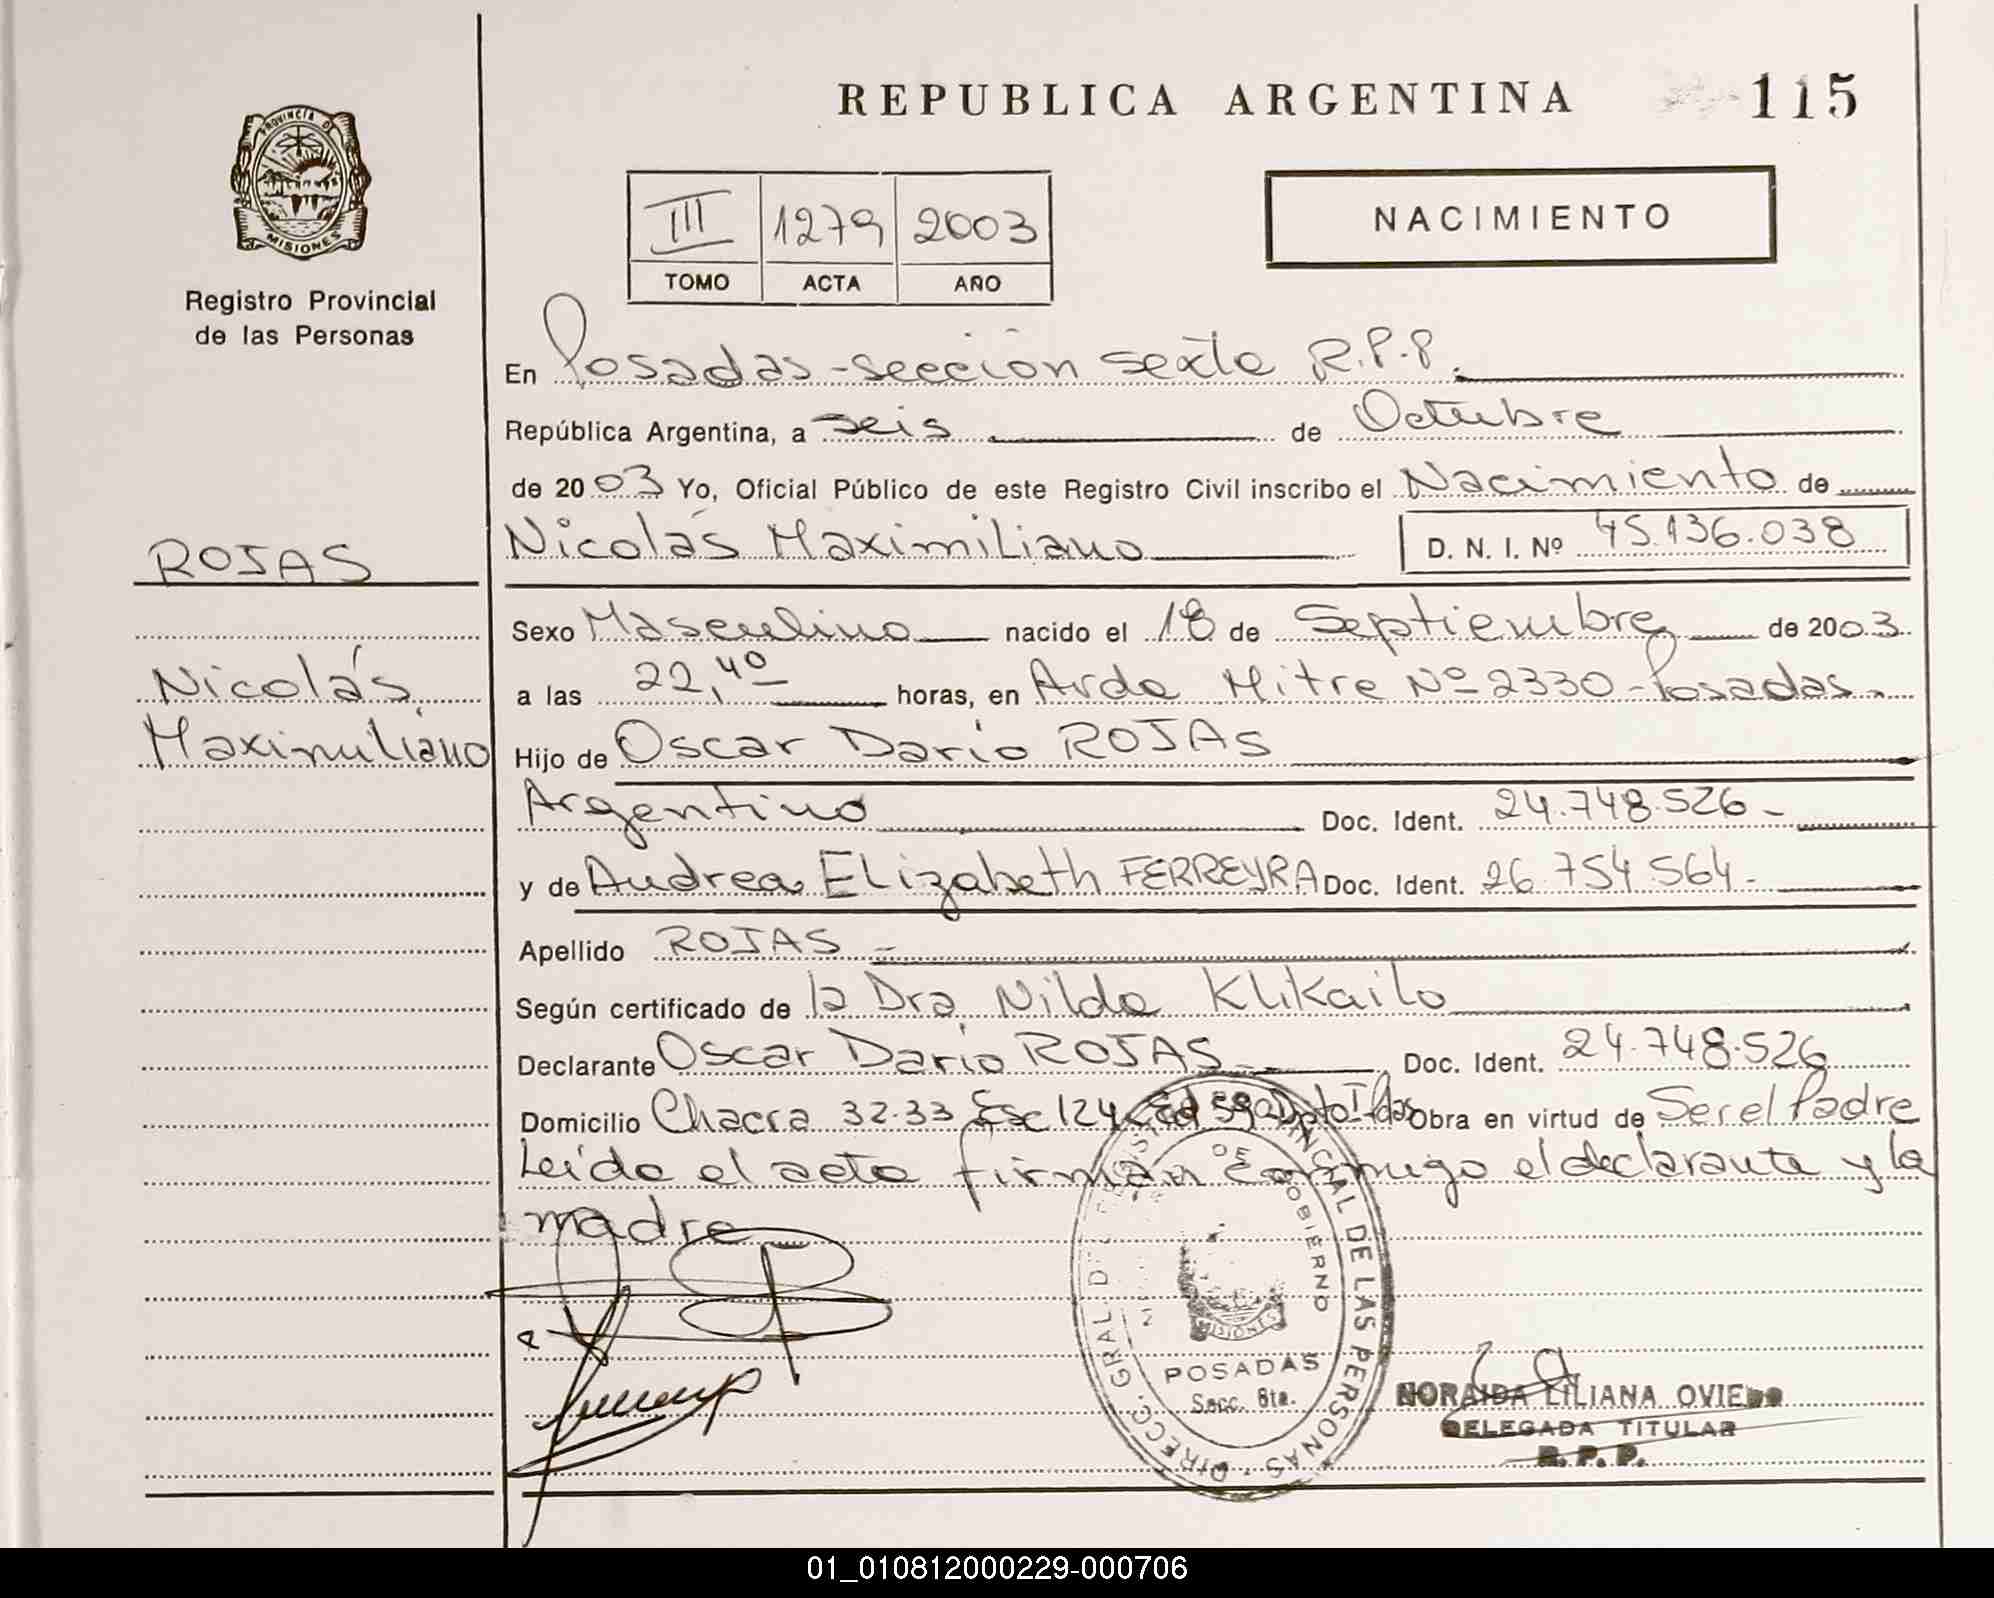 REPUBLICA ARGENTINA 115
PROVINCIA DE
MISIONES
Registro Provincial
de las Personas
III 1279 2003
TOMO ACTA AÑO
NACIMIENTO
En Posadas-sección sexta R.P.P.
República Argentina, a seis de Octubre
de 2003 Yo, Oficial Público de este Registro Civil inscribo el Nacimiento de
Nicolás Maximiliano D. N. I. Nº 45.136.038
ROJAS
Nicolás
Maximiliano
Sexo Masculino nacido el 18 de Septiembre de 2003
a las 22,40 horas, en Avda Mitre Nº 2330-Posadas
Hijo de Oscar Darío ROJAS
Argentino Doc. Ident. 24.748.526-
y de Andrea Elizabeth FERREYRA Doc. Ident. 26.754.564-
Apellido ROJAS
Según certificado de la Dra. Nilda Klikailo
Declarante Oscar Darío ROJAS Doc. Ident. 24.748.526
Domicilio Chacra 32-33 Esc 124 Ed 59 Dpto Obra en virtud de Ser el Padre
Leída el acta firman conmigo el declarante y la
madre
DIRECC. GRAL. DE REGISTRO PROVINCIAL DE LAS PERSONAS
DE GOBIERNO
MISIONES
POSADAS
Secc. 6ta.
NORAIDA LILIANA OVIEDO
DELEGADA TITULAR
R. P. P.
01_010812000229-000706